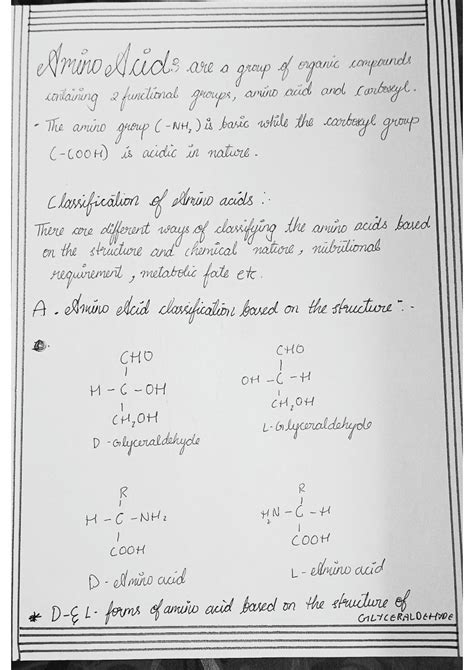 Amino Acids are a group of organic compounds
containing 2 functional groups, amino acid and Carboxyl.
- The amino group (-NH₂) is basic while the carboxyl group
(-COOH) is acidic in nature.
Classification of Amino acids :-
There are different ways of classifying the amino acids based
on the structure and chemical nature, nutritional
requirement, metabolic fate etc.
A. Amino Acid classification based on the structure :-
CHO
H-C-OH
CH₂OH
D-Glyceraldehyde
CHO
OH-C-H
CH₂OH
L-Glyceraldehyde
R
H-C-NH₂
COOH
D-Amino acid
R
H₂N-C-H
COOH
L-Amino acid
* D-& L- forms of amino acid based on the structure of
GLYCERALDEHYDE